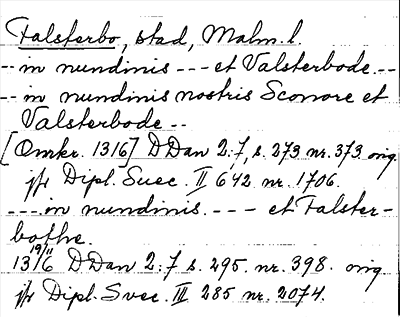 Falsterbo, stad, Malm. l.
-- in nundinis --- et Valsterbode --
-- in nundinis nostris Sconore et
Valsterbode --
[Omkr. 1316] DDan 2:7, s. 273 nr. 373. orig
jfr Dipl. Suec. II 642 nr. 1706.
--- in nundinis. --- et Falster-
bothe.
13 19/11 16 DDan 2:7 s. 295. nr. 398. orig
jfr Dipl. Svec. III 285 nr. 2074.